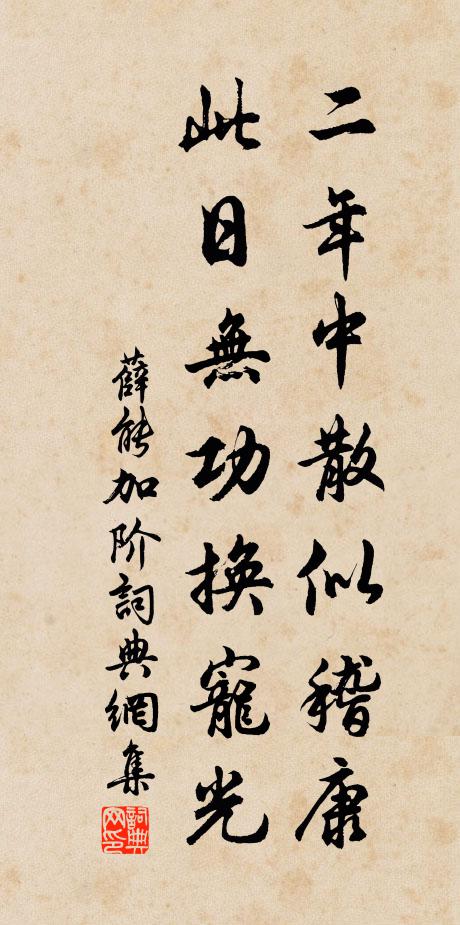 二年中散似稽康
此日無功換寵光
薛能加阶詞典網集
詞典网印